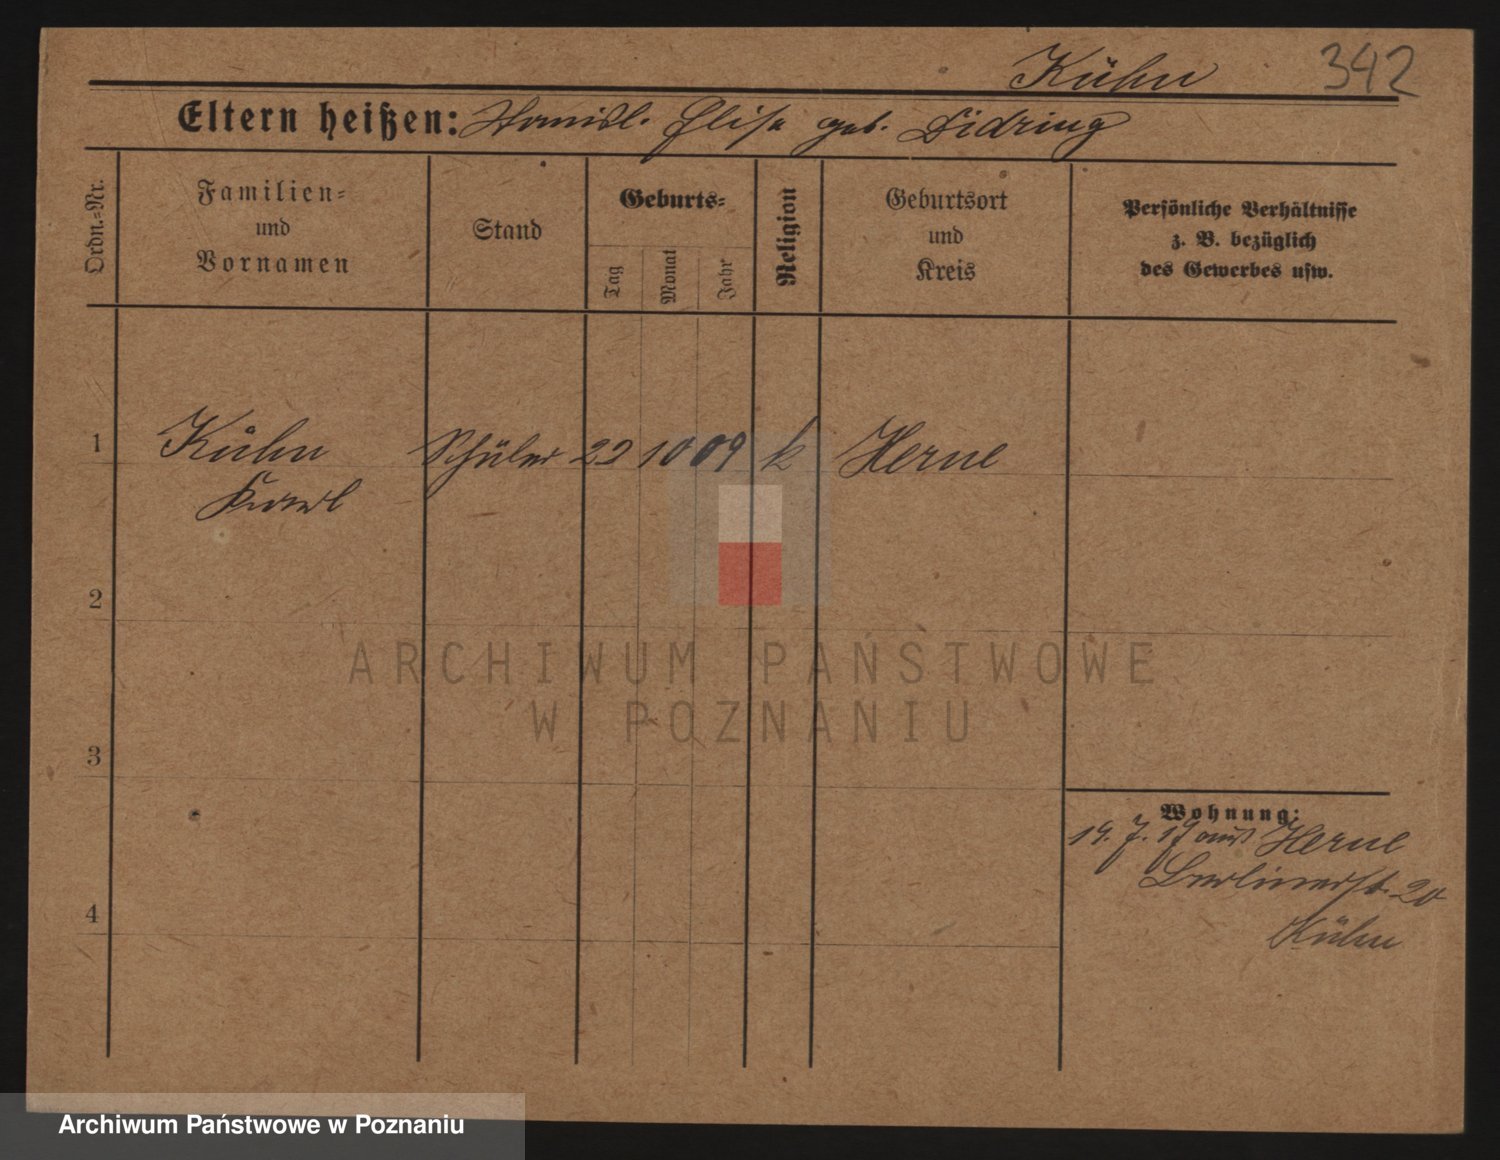 Kühn 342
Eltern heißen: Stanisl. Elise geb. Didring
Ordn.-Nr.
Familien-
und
Vornamen
Stand
Geburts-
Tag
Monat
Jahr
Religion
Geburtsort
und
Kreis
Persönliche Verhältnisse
z. B. bezüglich
des Gewerbes usw.
1 Kühn Schüler 22 10 09 k Herne
Karl
2
3
4
Wohnung:
19. 7. 19 aus Herne
Berlinerst. 20
Kühn
ARCHIWUM PAŃSTWOWE
W POZNANIU
Archiwum Państwowe w Poznaniu